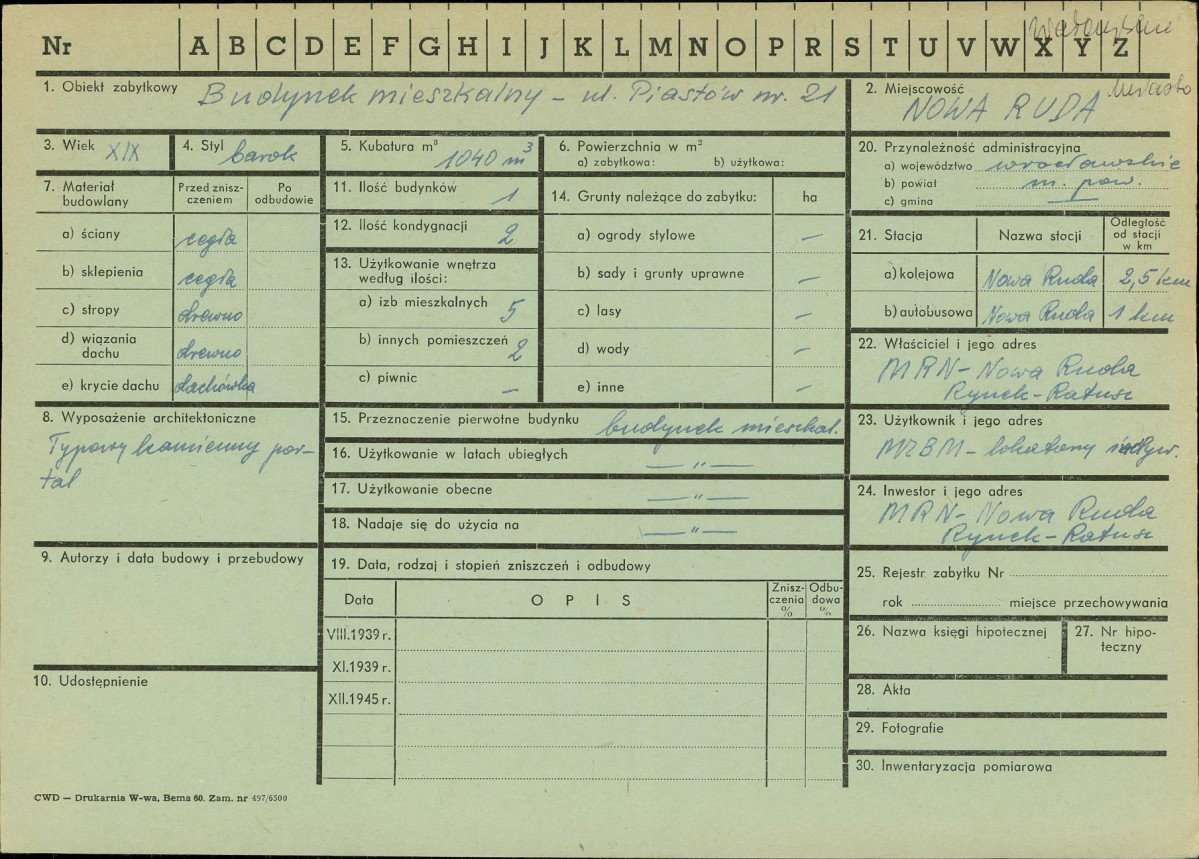 Nr A B C D E F G H I J K L M N O P R S T U V W X Y Z
1. Obiekt zabytkowy Budynek mieszkalny - ul. Piastów nr. 21
2. Miejscowość miasto
NOWA RUDA
3. Wiek XIX
4. Styl barok
5. Kubatura m³ 1040 m³
6. Powierzchnia w m²
a) zabytkowa: b) użytkowa:
7. Materiał
budowlany
Przed znisz-
czeniem
Po
odbudowie
a) ściany cegła
b) sklepienia cegła
c) stropy drewno
d) wiązania
dachu drewno
e) krycie dachu dachówka
8. Wyposażenie architektoniczne
Typowy kamienny por-
tal
9. Autorzy i data budowy i przebudowy
10. Udostępnienie
11. Ilość budynków 1
12. Ilość kondygnacji 2
13. Użytkowanie wnętrza
według ilości:
a) izb mieszkalnych 5
b) innych pomieszczeń 2
c) piwnic —
14. Grunty należące do zabytku: ha
a) ogrody stylowe —
b) sady i grunty uprawne —
c) lasy —
d) wody —
e) inne —
15. Przeznaczenie pierwotne budynku budynek mieszkal.
16. Użytkowanie w latach ubiegłych — " —
17. Użytkowanie obecne — " —
18. Nadaje się do użycia na — " —
19. Data, rodzaj i stopień zniszczeń i odbudowy
Data O P I S Znisz-
czenia
% Odbu-
dowa
%
VIII.1939 r.
XI.1939 r.
XII.1945 r.
20. Przynależność administracyjna
a) województwo wrocławskie
b) powiat m. pow.
c) gmina —
21. Stacja Nazwa stacji Odległość
od stacji
w km
a) kolejowa Nowa Ruda 2,5 km
b) autobusowa Nowa Ruda 1 km
22. Właściciel i jego adres
MRN - Nowa Ruda
Rynek - Ratusz
23. Użytkownik i jego adres
MZBM - lokatorzy indyw.
24. Inwestor i jego adres
MRN - Nowa Ruda
Rynek - Ratusz
25. Rejestr zabytku Nr
rok miejsce przechowywania
26. Nazwa księgi hipotecznej
27. Nr hipo-
teczny
28. Akta
29. Fotografie
30. Inwentaryzacja pomiarowa
CWD — Drukarnia W-wa, Bema 60. Zam. nr 497/6500